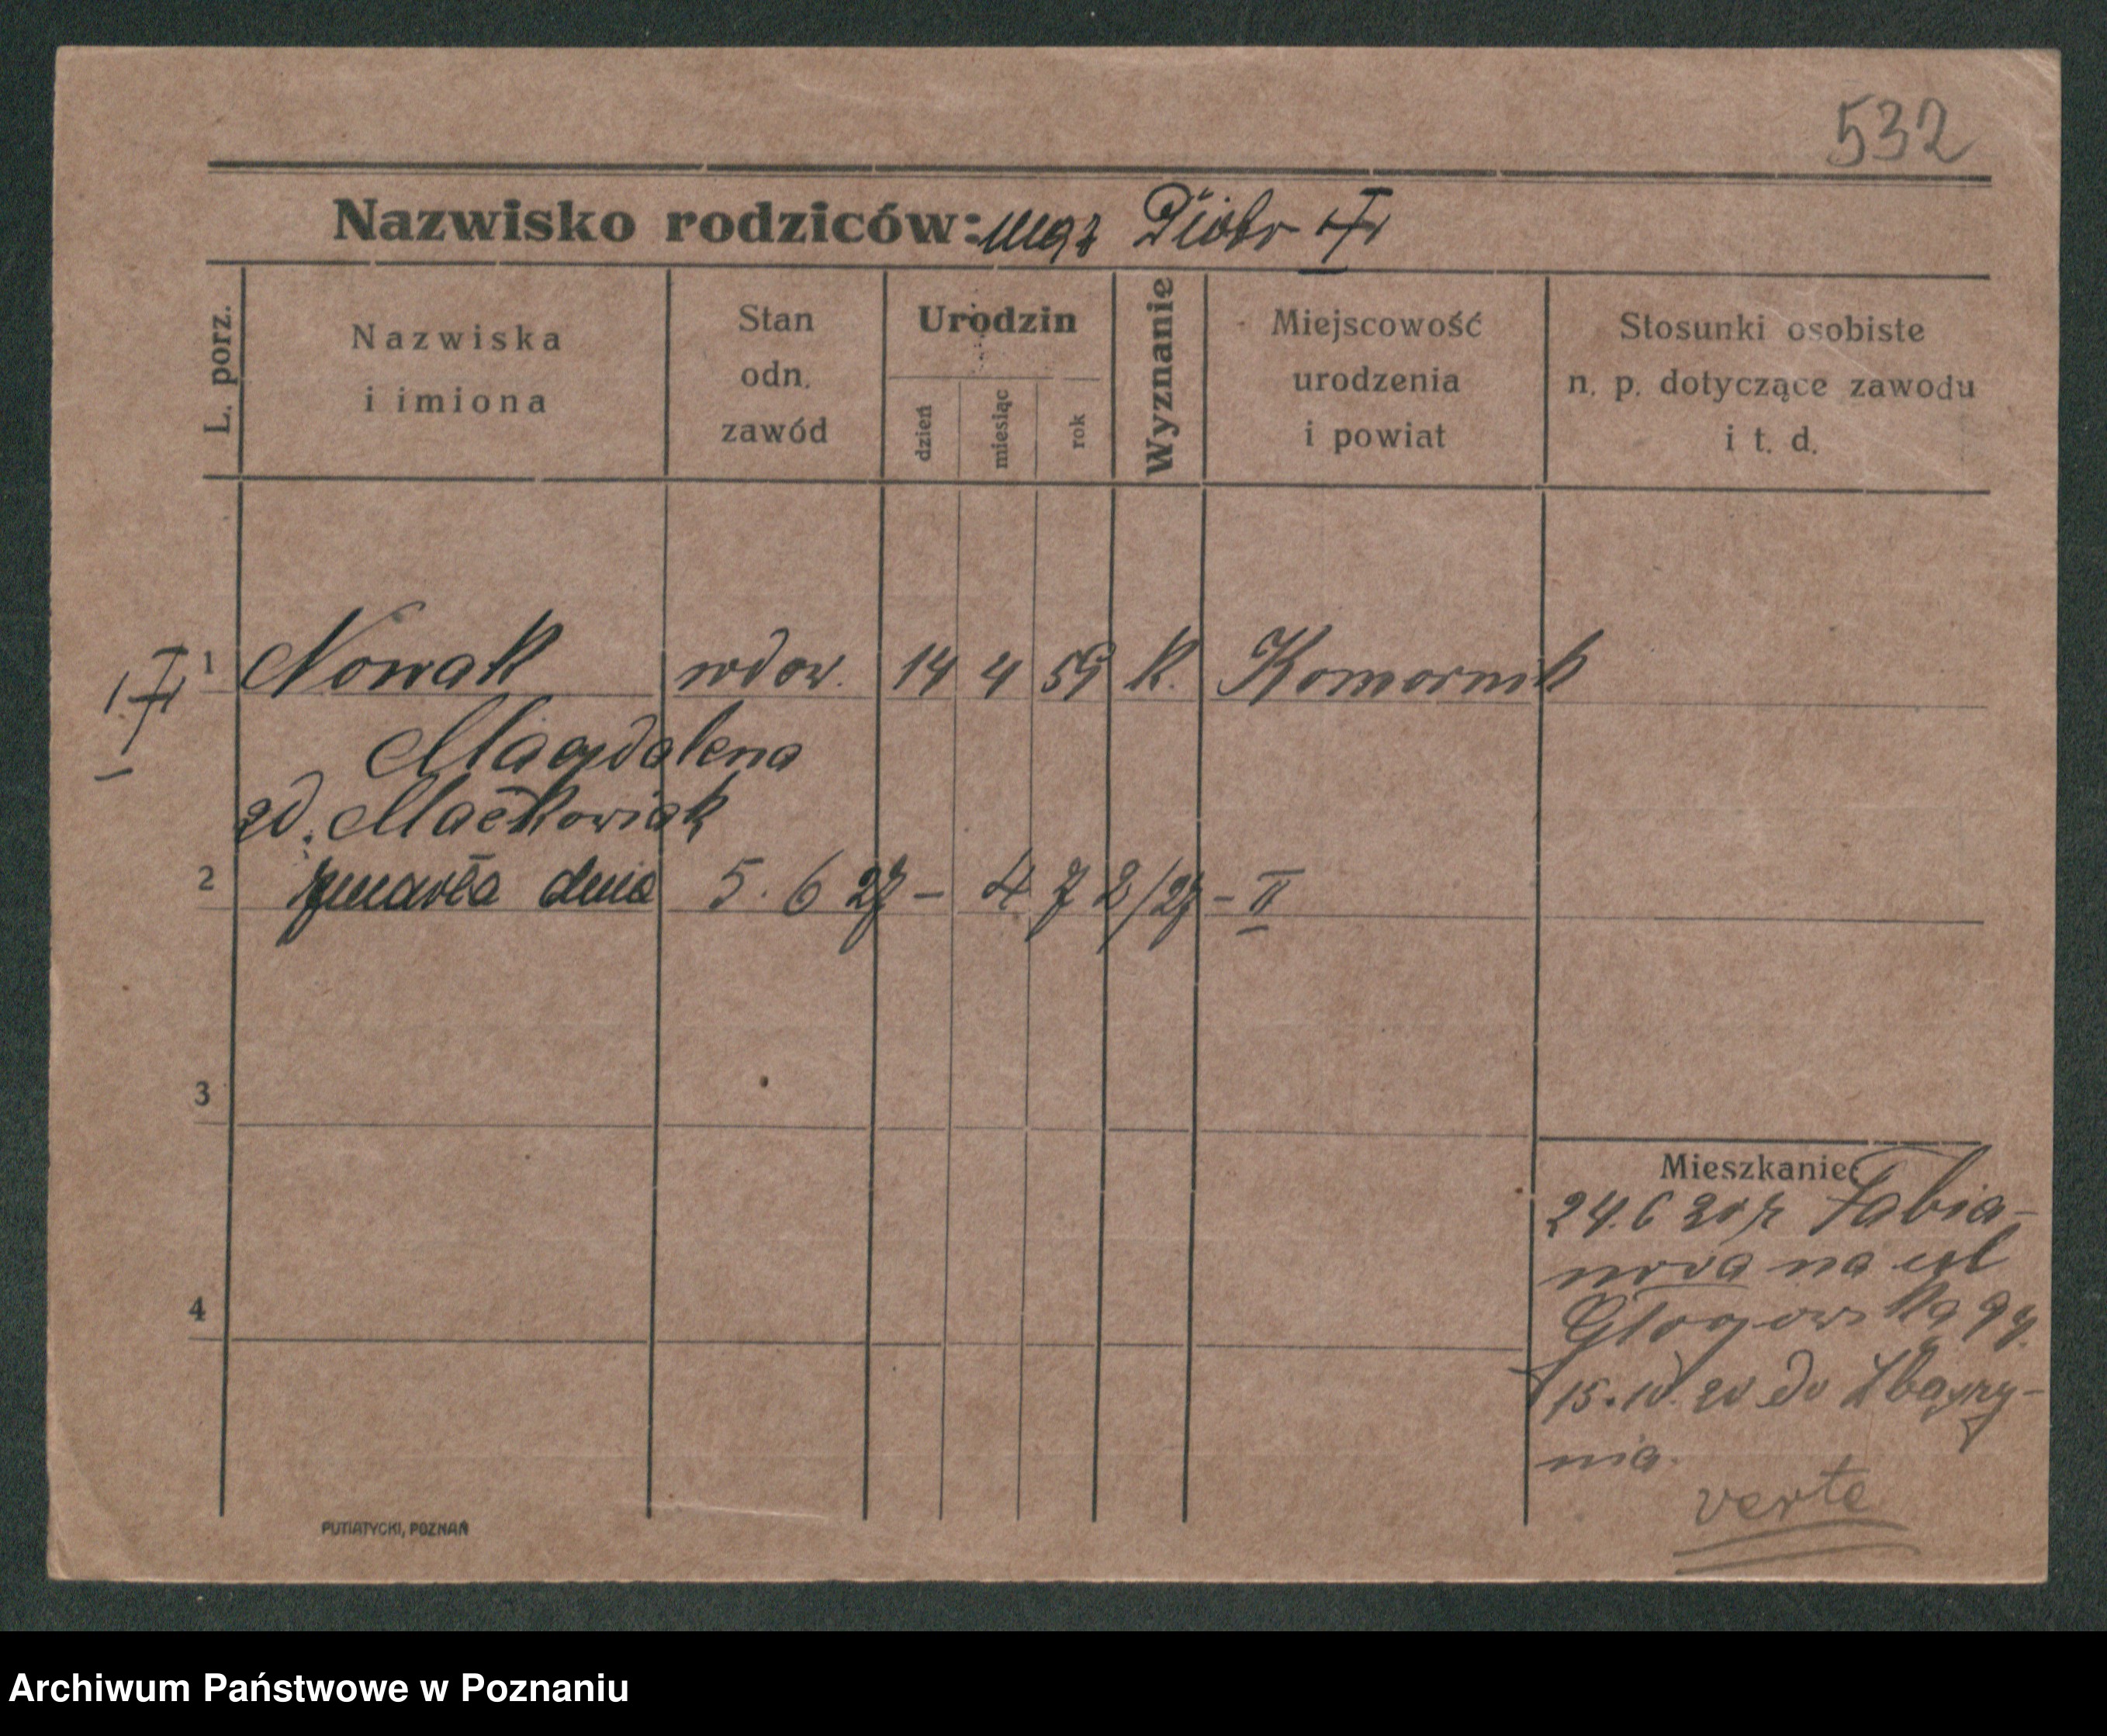 532
Nazwisko rodziców: mąż Piotr †
L. porz.
Nazwiska
i imiona
Stan
odn.
zawód
Urodzin
dzień
miesiąc
rok
Wyznanie
Miejscowość
urodzenia
i powiat
Stosunki osobiste
n. p. dotyczące zawodu
i t. d.
† 1 Nowak wdow. 14 4 59 k. Komornik
Magdalena
zd. Maćkowiak
2 zmarła dnia 5. 6 27 – 472/27 – II
3
4
Mieszkanie:
24.6 20 r Fabia-
nowa na ul
Głogowską 94.
15.10.20 do Zbąszy-
nia.
verte
PUTIATYCKI, POZNAŃ
Archiwum Państwowe w Poznaniu